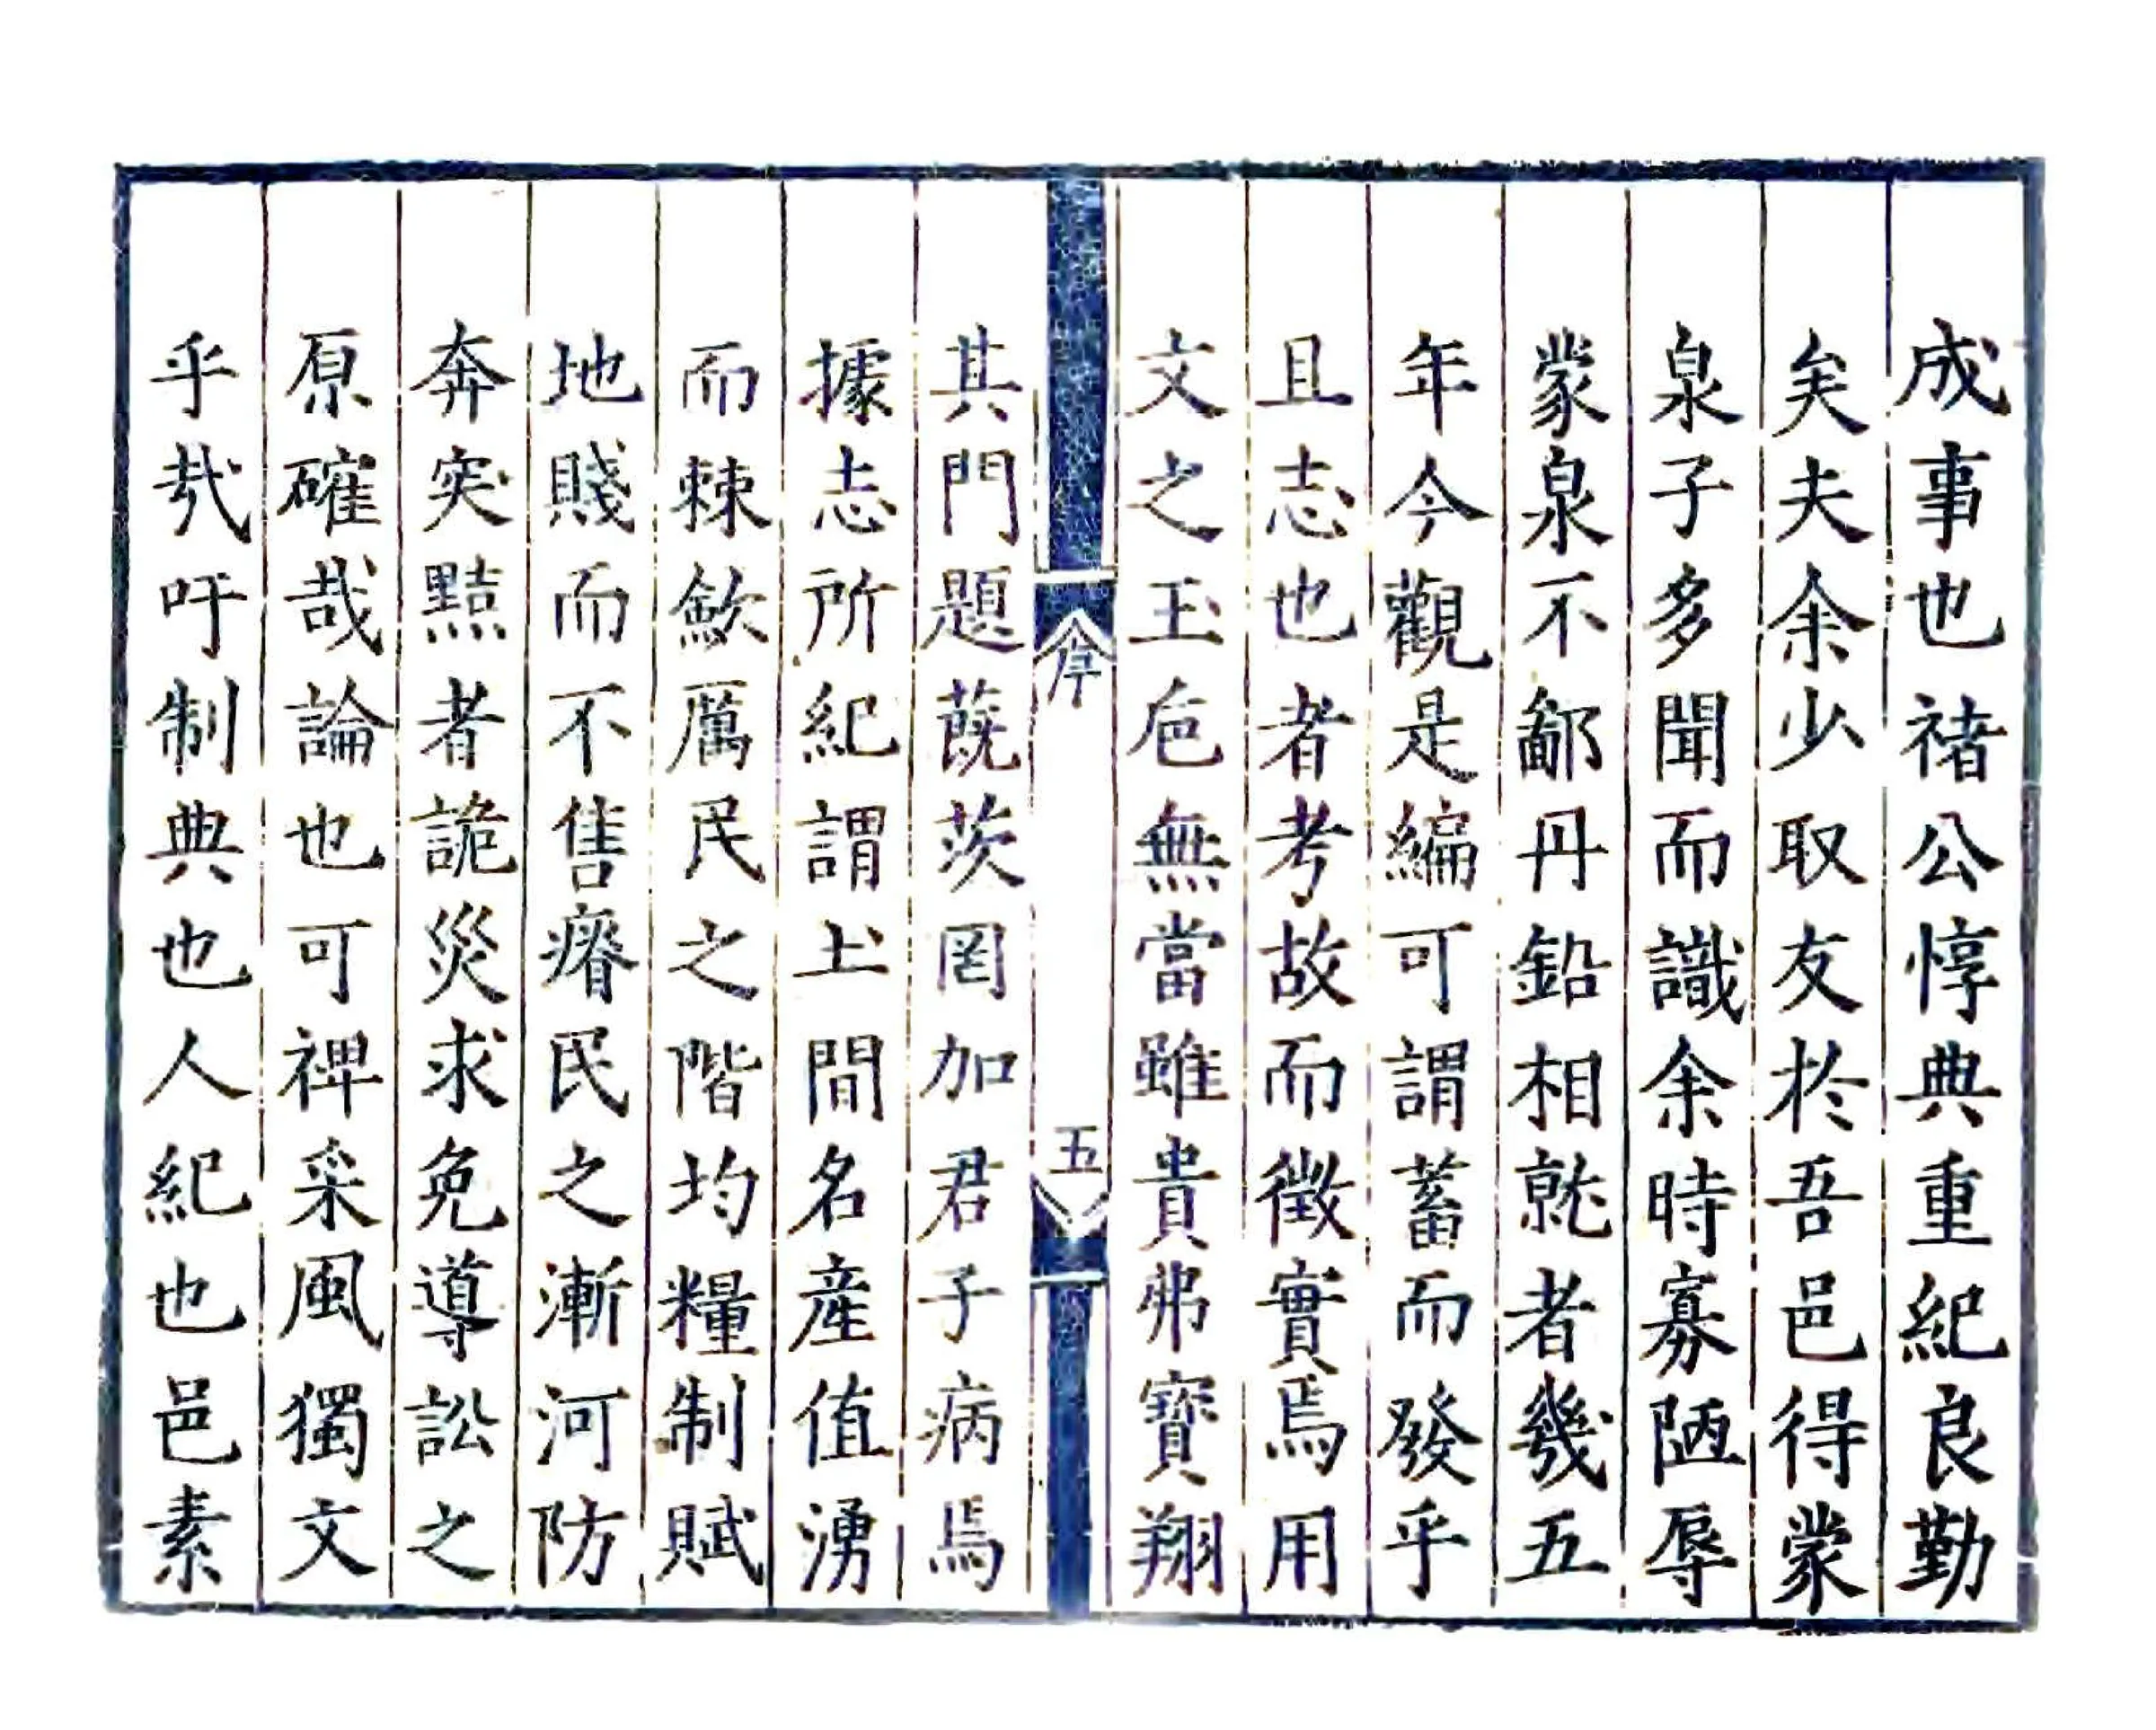 成事也褚公惇典重紀良勤
矣夫余少取友扵吾邑得蒙
泉子多聞而識余時寡陋辱
蒙泉不鄙丹鉛相就者幾五
年今觀是編可謂蓄而發乎
且志也者考故而徵實焉用
文之玉巵無當雖貴弗寶翔
序
五
其門題蔇茨罔加君子病焉
據志所紀謂上間名産值湧
而棘歛厲民之階均糧制賦
地賤而不售瘠民之漸河防
奔突黠者詭災求免導訟之
原確哉論也可裨采風獨文
乎㢤吁制典也人紀也邑素